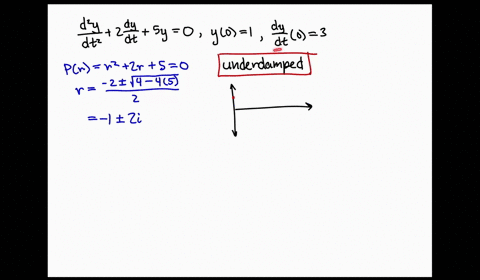 d²y/dt² + 2 dy/dt + 5y = 0 , y(0) = 1 , dy/dt (0) = 3
P(r) = r² + 2r + 5 = 0
r = (-2 ± √(4 - 4(5)))/2
= -1 ± 2i
underdamped